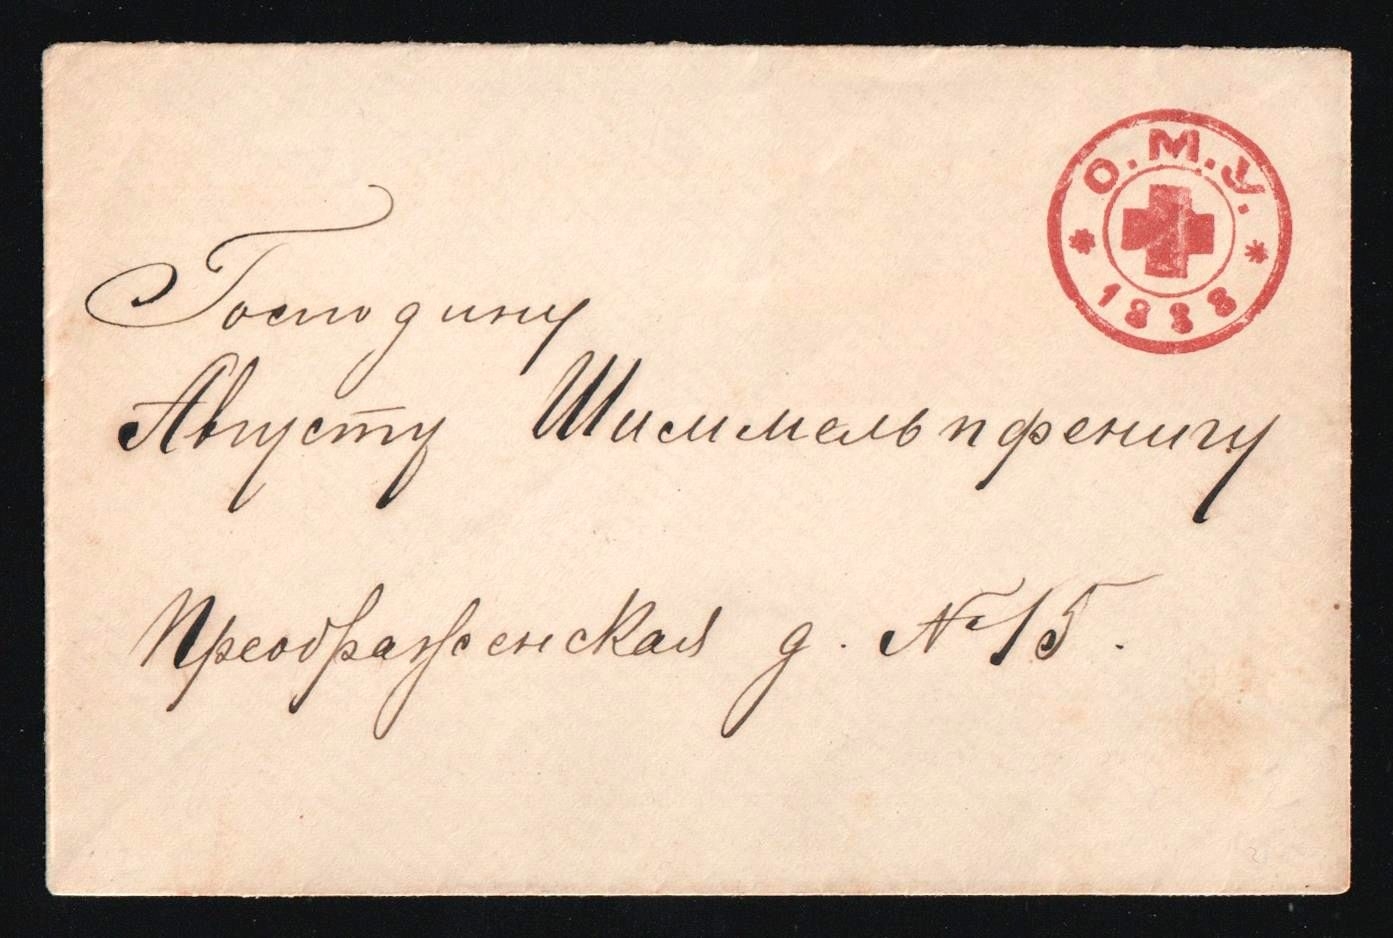 О.М.У.
1888
Господину
Августу Шиммельпфенигу
Преображенская д. № 15.